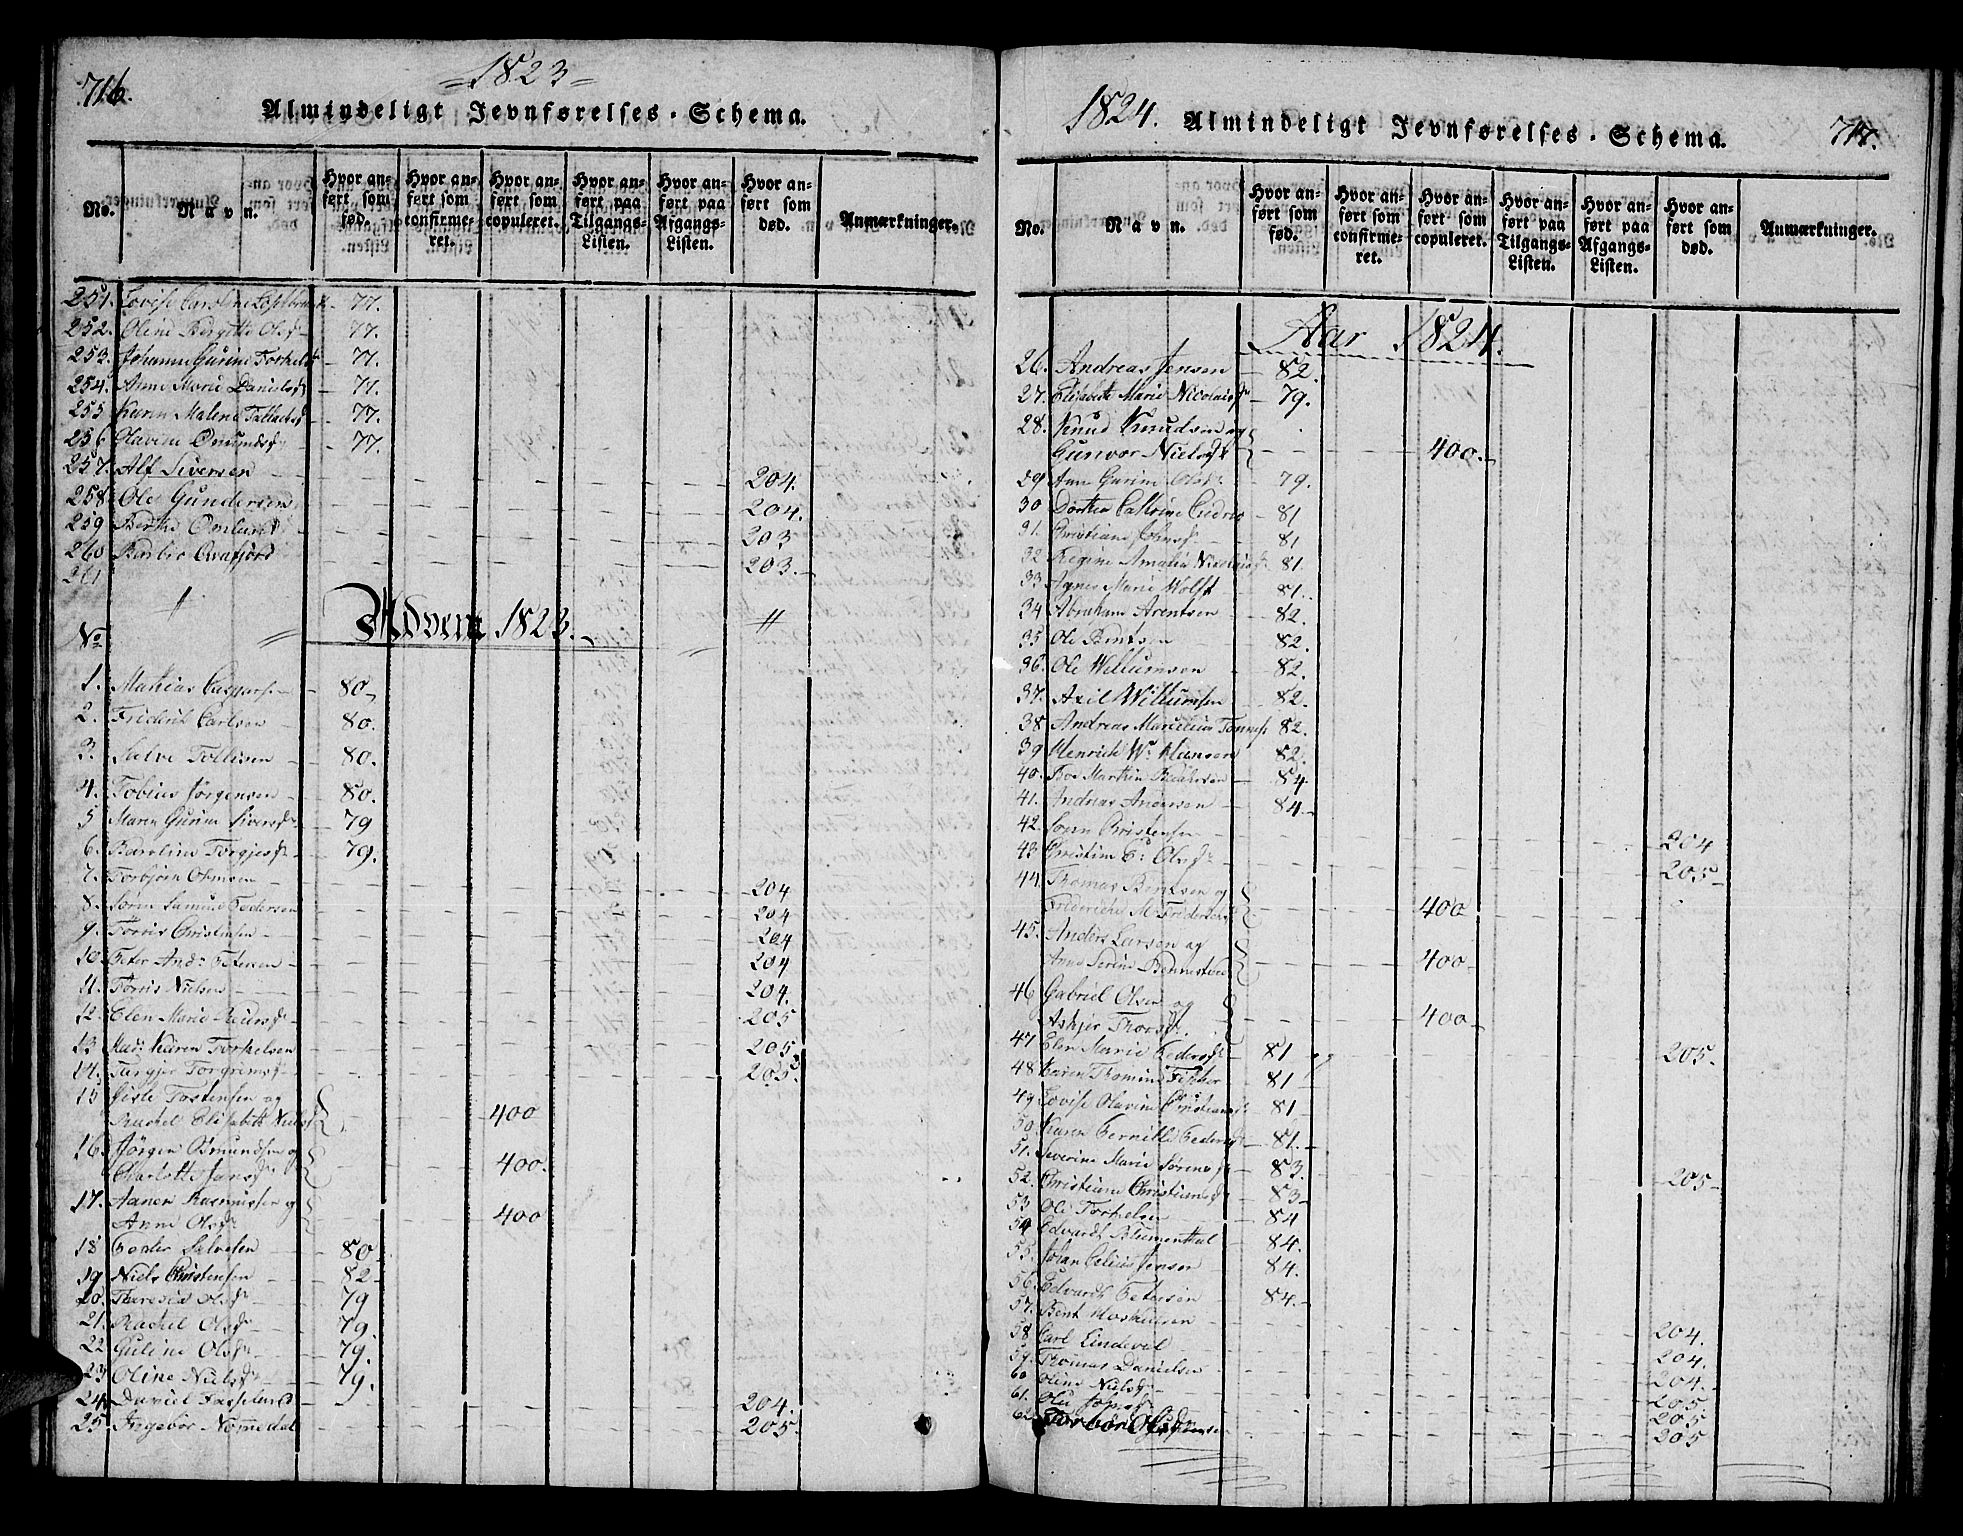 716.
=1823=
Almindeligt Jevnførelses-Schema.
No. Navn. Hvor anført som fød. Hvor anført som confirmeret. Hvor anført som copuleret. Hvor anført paa Tilgangs-Listen. Hvor anført paa Afgangs-Listen. Hvor anført som død. Anmærkninger.
251. Lovise Caroline 77.
252. Oline Bergitte Olsdr 77.
253. Johanne Gurine 77.
254. Anne Marie Danielsdr 77.
255 Karen Malene 77.
256 Olavine Omundsdr 77.
257. Alf Siversen 204.
258. Ole Gundersen 204.
259 Berthe 203
260 203.
261
Advent 1823.
No
1. Mathias 80
2. Friderik Carlsen 80.
3. Salve Tollisen 80.
4. Tobias Jørgensen 80.
5 Maren Gurine Siversdr 79
6. Karoline Torgjesdr 79.
7. Torbjörn 204
8. Sören Samuel Pedersen 204
9. Torris Christensen 204
10. Peter Andr Petersen 204
11. Torris Nielsen 204.
12. Elen Marie 205
13 Mad: Karen Torkelsen 205
14. Torgjer Torgrimsdr 205.
15 Gisle Torstensen og
Rachel Elisabeth Nielsdr 400
16. Jörgen Omundsen og
Charlotte Jansdr 400.
17. Aanen Rasmussen og
Anne Olsdr 400
18 Peder Salvesen 80
19. Niels Christensen 82
20. Theresia Olsdr 79
21. Rachel Olsdr 79.
22 Guline Olsdr 79.
23 Oline Nielsdr 79.
24. Daniel 204.
25. Ingebor Nomedal 205.
1824. Almindeligt Jevnførelses-Schema. 717.
No. Navn. Hvor anført som fød. Hvor anført som confirmeret. Hvor anført som copuleret. Hvor anført paa Tilgangs-Listen. Hvor anført paa Afgangs-Listen. Hvor anført som død. Anmærkninger.
Aar 1824.
26. Andreas Jensen 82.
27. Elisabeth Marie Nicolaisdr 79.
28. Knud Knudsen og
Gunvor Nielsdr 400.
29 Ane Gurine Olsdr 79.
30 Dorthea Cathrine 81
31. Christiane Johnsdr 81
32 Regine Amalia Nicolaisdr 81.
33 Agnes Marie Wolft 81.
34 Abraham Arentsen 82.
35 Ole Berntsen 82.
36. Ole Willumsen 82.
37. Axil Willumsen 82.
38 Andreas Marcelius 82.
39 Henrich Wm Hansen 82.
40. Boe Marthin 84
41. Andreas Andersen 84.
42. Sören Christensen 204
43 Christine Olsdr 205
44. Thomas Berntsen og
Frideriche M. Fridersdr 400
45. Anders Larsen og
Anne Serine 400
46 Gabriel Olsen og
Askjer Thorsdr 400
47 Elen Marie Pedersdr 81 205.
48 Karen Thomine 81
49 Lovise Olavine Christiansdr 81
50. Karen Pernille Pedersdr 81.
51. Severine Marie Sörensdr 83.
52. Christiane Christiansdr 83 205
53 Ole Torkelsen 84
54 Edvardt Blumenthal 84.
55. Johan Jensen 84.
56. Edvardt Petersen 84.
57. Bent 204.
58. Carl Lindevel 204.
59. Thomas Danielsen 204.
60 Oline Nielsdr 205
61. 205
62. 205